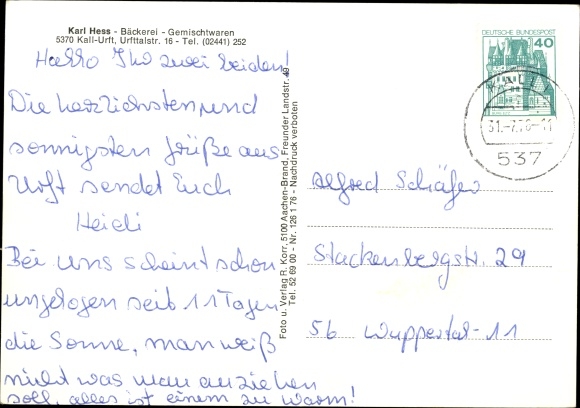 Karl Hess - Bäckerei - Gemischtwaren
5370 Kall-Urft, Urfttalstr. 16 - Tel. (02441) 252
Hallo Ihr zwei beiden!
Die herzlichsten und
sonnigsten Grüße aus
Urft sendet Euch
Heidi
Bei uns scheint schon
ungelogen seit 11 Tagen
die Sonne, man weiß
nicht was man anziehen
soll, alles ist einem zu warm!
Foto u. Verlag R. Korr, 5100 Aachen-Brand, Freunder Landstr. 49
Tel. 52 69 00 - Nr. 126 1 76 - Nachdruck verboten
DEUTSCHE BUNDESPOST
40
KALL
31.-7.78-11
537
Alfred Schäfer
Stackenbergstr. 29
56 Wuppertal-11